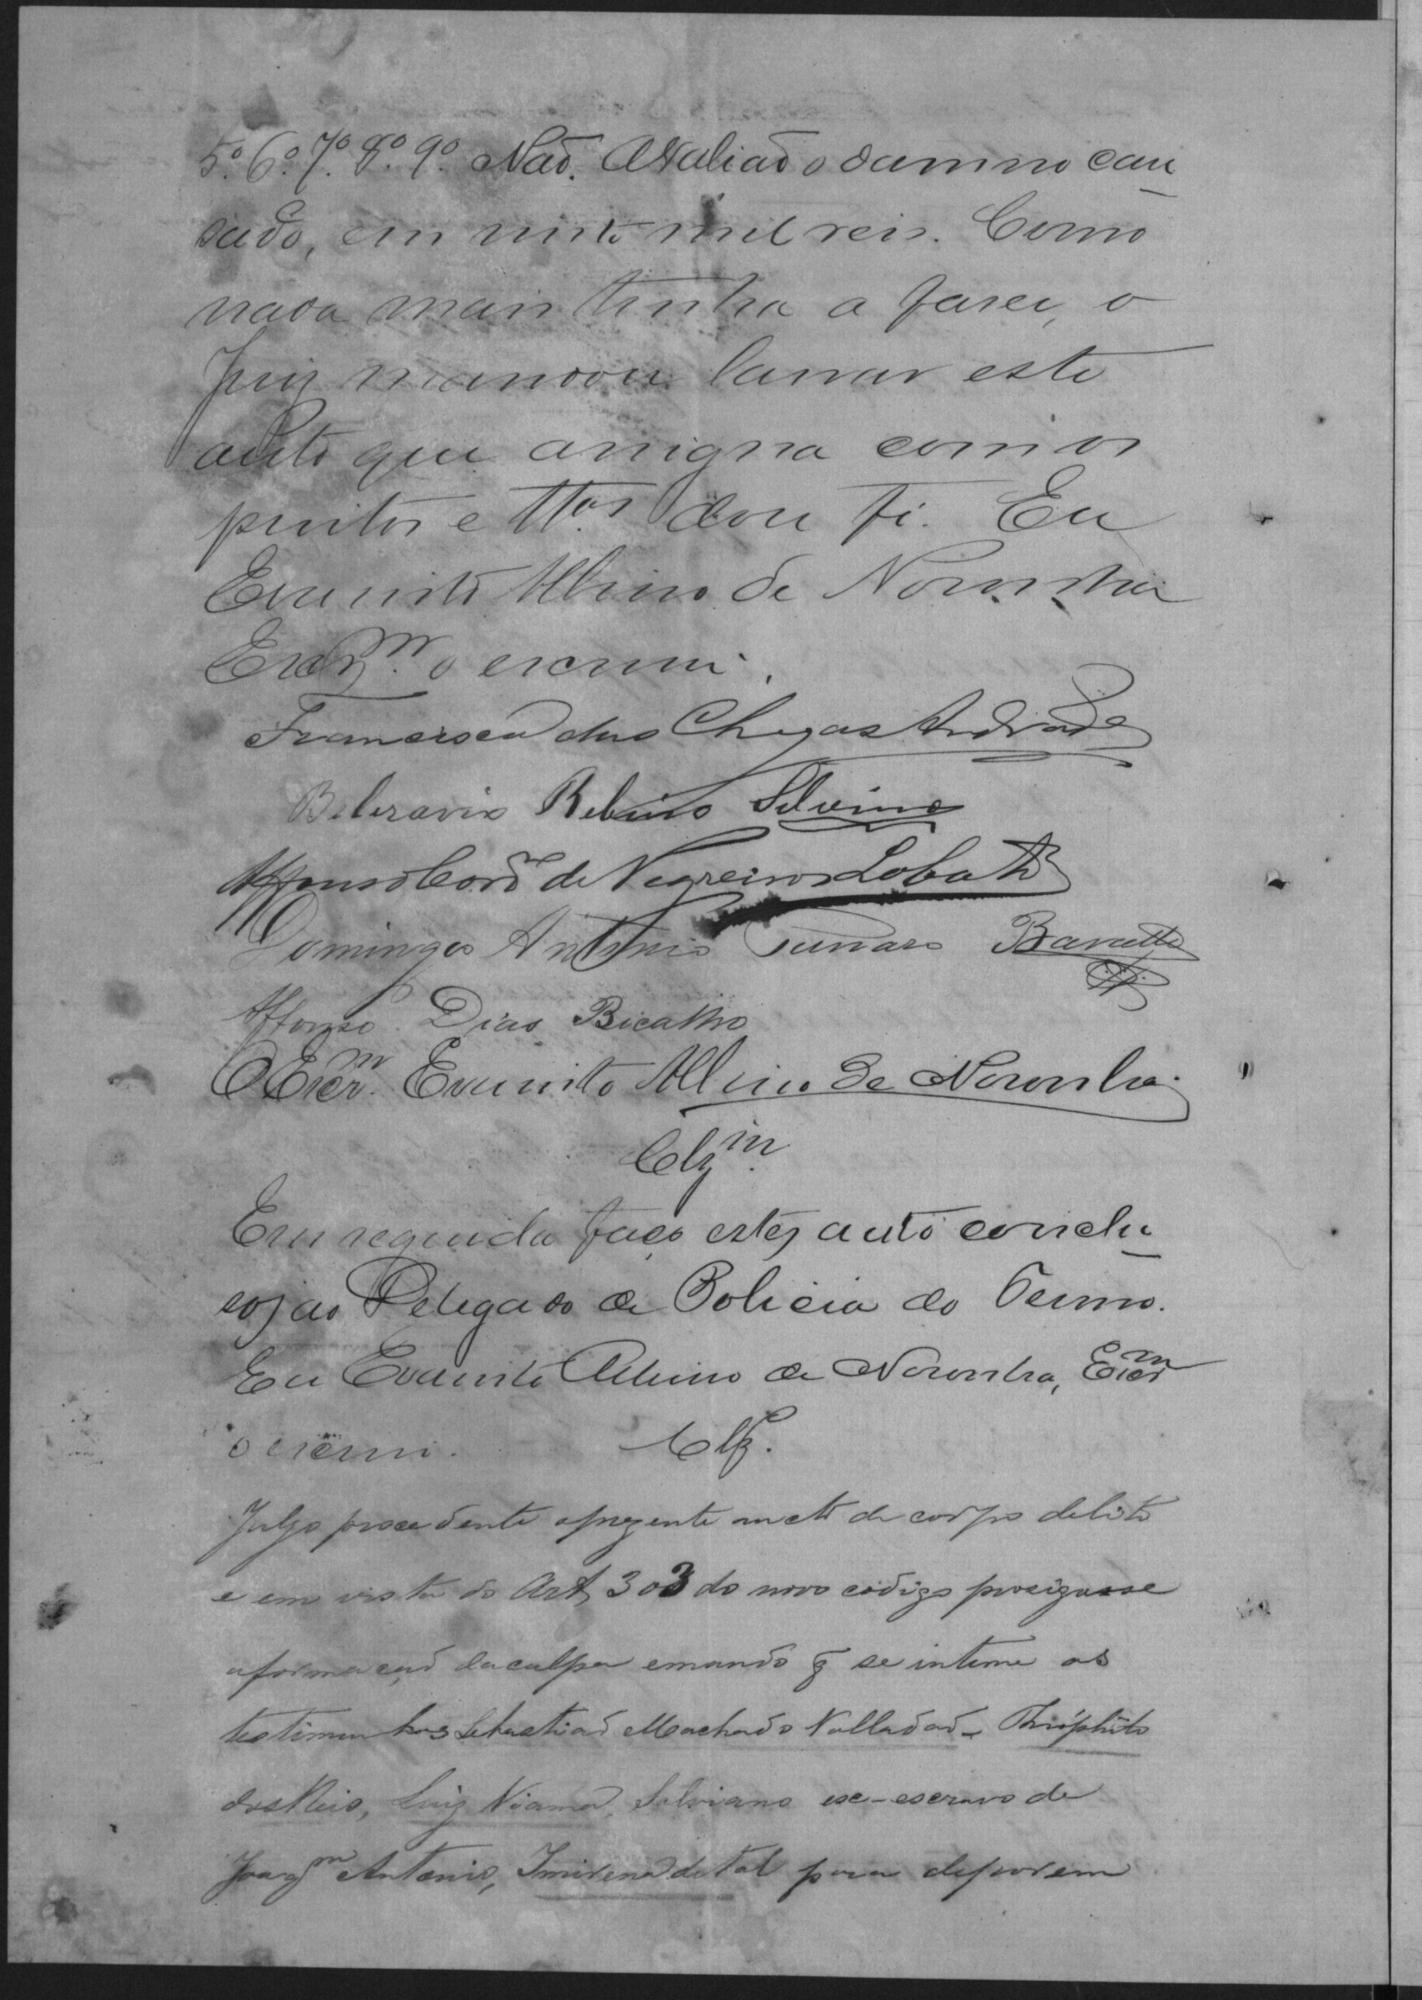 5.º 6.º 7.º 8.º 9.º Não. Avaliado o damno cau
sado, em vinte mil reis. Como
nada mais tinha a faser, o
Juiz mandou lavrar este
auto que assigna com os
peritos e tt.as dou fé. Eu
Evaristo Albino de Noronha
Escr.m o escrevi.
Francisco das Chagas Andrade
Rebino Silvino
Affonso Cord.º de Negreiros Lobato
Domingos Antonio Barretto
Affonso Dias Bicalho
O Escr.m Evaristo Albino de Noronha.
Clz.m
Em seguida faço estes auto conclu
sos ao Delegado de Policia do Termo.
Eu Evaristo Albino de Noronha, Escr.m
o escrevi. Clz.
Julgo procedente o prezente aucto de corpo delicto
e em vista do Art. 303 do novo codigo prosigasse
a formação da culpa e mando q se intime as
testimunhas Sebastião Machado Valladão, Theophilo
dos Reis, Luiz Viana, Silviano ex-escravo de
Joaq.m Antonio, de tal para deporem